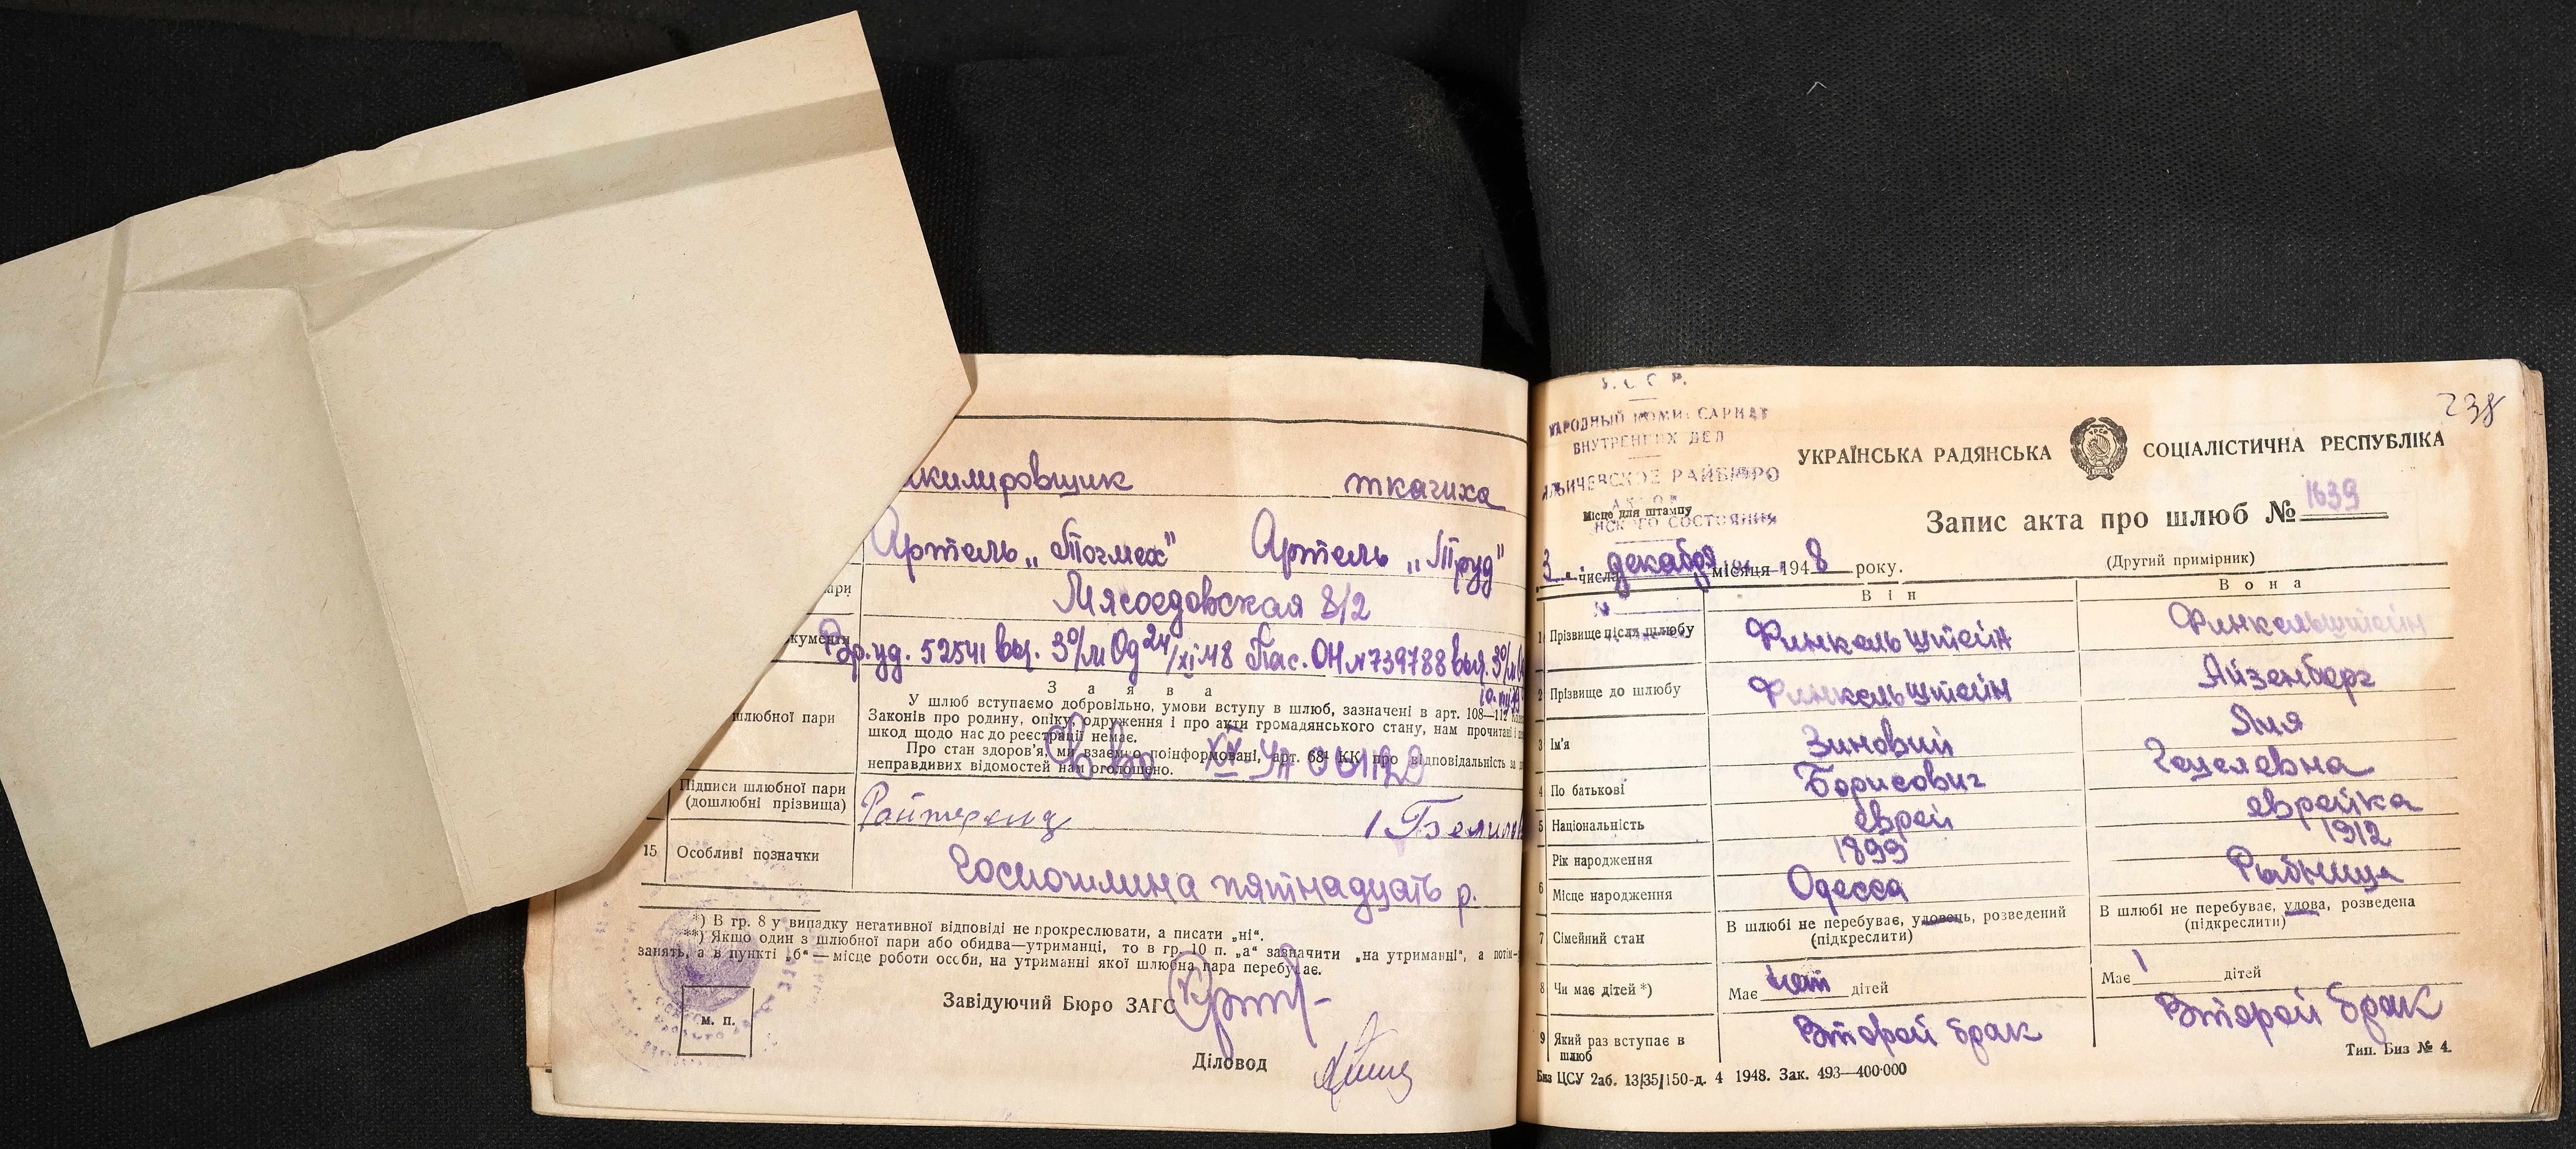 икилировщик ткачиха
Артель „Точмех" Артель „Труд"
ари
Мясоедовская 8/2
кументи
Вр.уд. 52541 выд. 3 о/м Од 24/XI 48 Пас. ОН № 739788 выд. 3 о/м
З а я в а
У шлюб вступаємо добровільно, умови вступу в шлюб, зазначені в арт. 108—112
шлюбної пари
Законів про родину, опіку, одруження і про акти громадянського стану, нам прочитані і
шкод щодо нас до реєстрації немає.
Про стан здоров'я, ми взаємно поінформовані, арт. 68¹ КК про відповідальність за
неправдивих відомостей нам оголошено.
Св во
Підписи шлюбної пари
(дошлюбні прізвища)
15 Особливі позначки
Госпошлина пятнадцать р.
*) В гр. 8 у випадку негативної відповіді не прокреслювати, а писати „ні".
**) Якщо один з шлюбної пари або обидва—утриманці, то в гр. 10 п. „а" зазначити „на утриманні", а потім
занять, а в пункті „б"—місце роботи особи, на утриманні якої шлюбна пара перебуває.
Завідуючий Бюро ЗАГС
м. п.
Діловод
У. С. С. Р.
НАРОДНЫЙ КОМИССАРИАТ
ВНУТРЕННИХ ДЕЛ
ИЛЬИЧЕВСКОЕ РАЙБЮРО
АКТОВ
НСКОГО СОСТОЯНИЯ
Місце для штампу
238
УКРАЇНСЬКА РАДЯНСЬКА СОЦІАЛІСТИЧНА РЕСПУБЛІКА
Запис акта про шлюб № 1639
(Другий примірник)
3 числа декабря місяця 1948 року.
В і н В о н а
1 Прізвище після шлюбу Финкельштейн Финкельштейн
2 Прізвище до шлюбу Финкельштейн Айзенберг
3 Ім'я Зиновий Яля
4 По батькові Борисович Гецелевна
5 Національність еврей еврейка
Рік народження 1899 1912
6 Місце народження Одесса Рыбница
7 Сімейний стан В шлюбі не перебуває, удовець, розведений (підкреслити) В шлюбі не перебуває, удова, розведена (підкреслити)
8 Чи має дітей *) Має нет дітей Має 1 дітей
9 Який раз вступає в шлюб Второй брак Второй брак
Тип. Биз № 4.
Биз ЦСУ 2аб. 13/35/150-д. 4 1948. Зак. 493—400·000